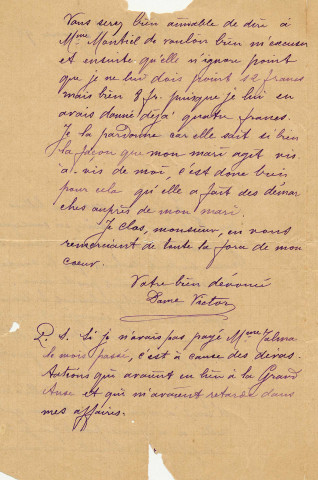 Vous serez bien aimable de dire à
Mme Montiel de vouloir bien m'excuser
et ensuite qu'elle n'ignore point
que je ne lui dois point 12 francs
mais bien 8 fr. puisque je lui en
avais donné déjà quatre francs.
Je la pardonne car elle sait si bien
la façon que mon mari agit vis
à-vis de moi, c'est donc bien
pour cela qu'elle a fait des démar
ches auprès de mon mari.
Je clos, monsieur, en vous
remerciant de toute la force de mon
coeur.
Votre bien dévouée
Dame Victor
P. S. Si je n'avais pas payé Mme
le mois passé, c'est à cause des dévas-
tations qui avaient eu lieu à la Grand
Anse et qui m'avaient retardé dans
mes affaires.